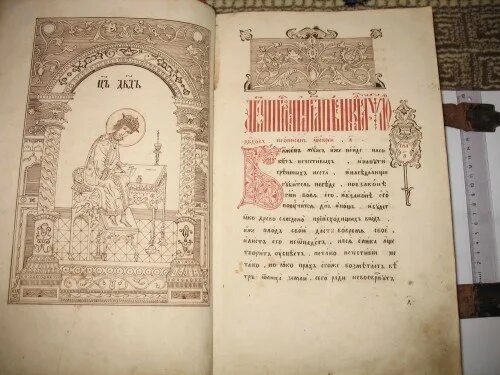 ЦЬ ДВДЪ
Блаженъ мужъ иже неиде насо
вѣтъ нечестивыхъ , инапути
грѣшныхъ неста , инасѣдалищи
губитель несѣде , новзаконѣ
гни воля его , ивзаконѣ его
поучится днь инощь , ибудетъ
ꙗко древо саждено приисходищихъ водъ ,
иже плодъ свой дастъ вовремя свое ,
илистъ его неѿпадетъ , ивсѧ елика аще
творитъ успѣетъ , нетако нечестивии не
тако , но ꙗко прахъ егоже возметаетъ вѣ
тръ ѿлица земли , сего ради невоскреснутъ